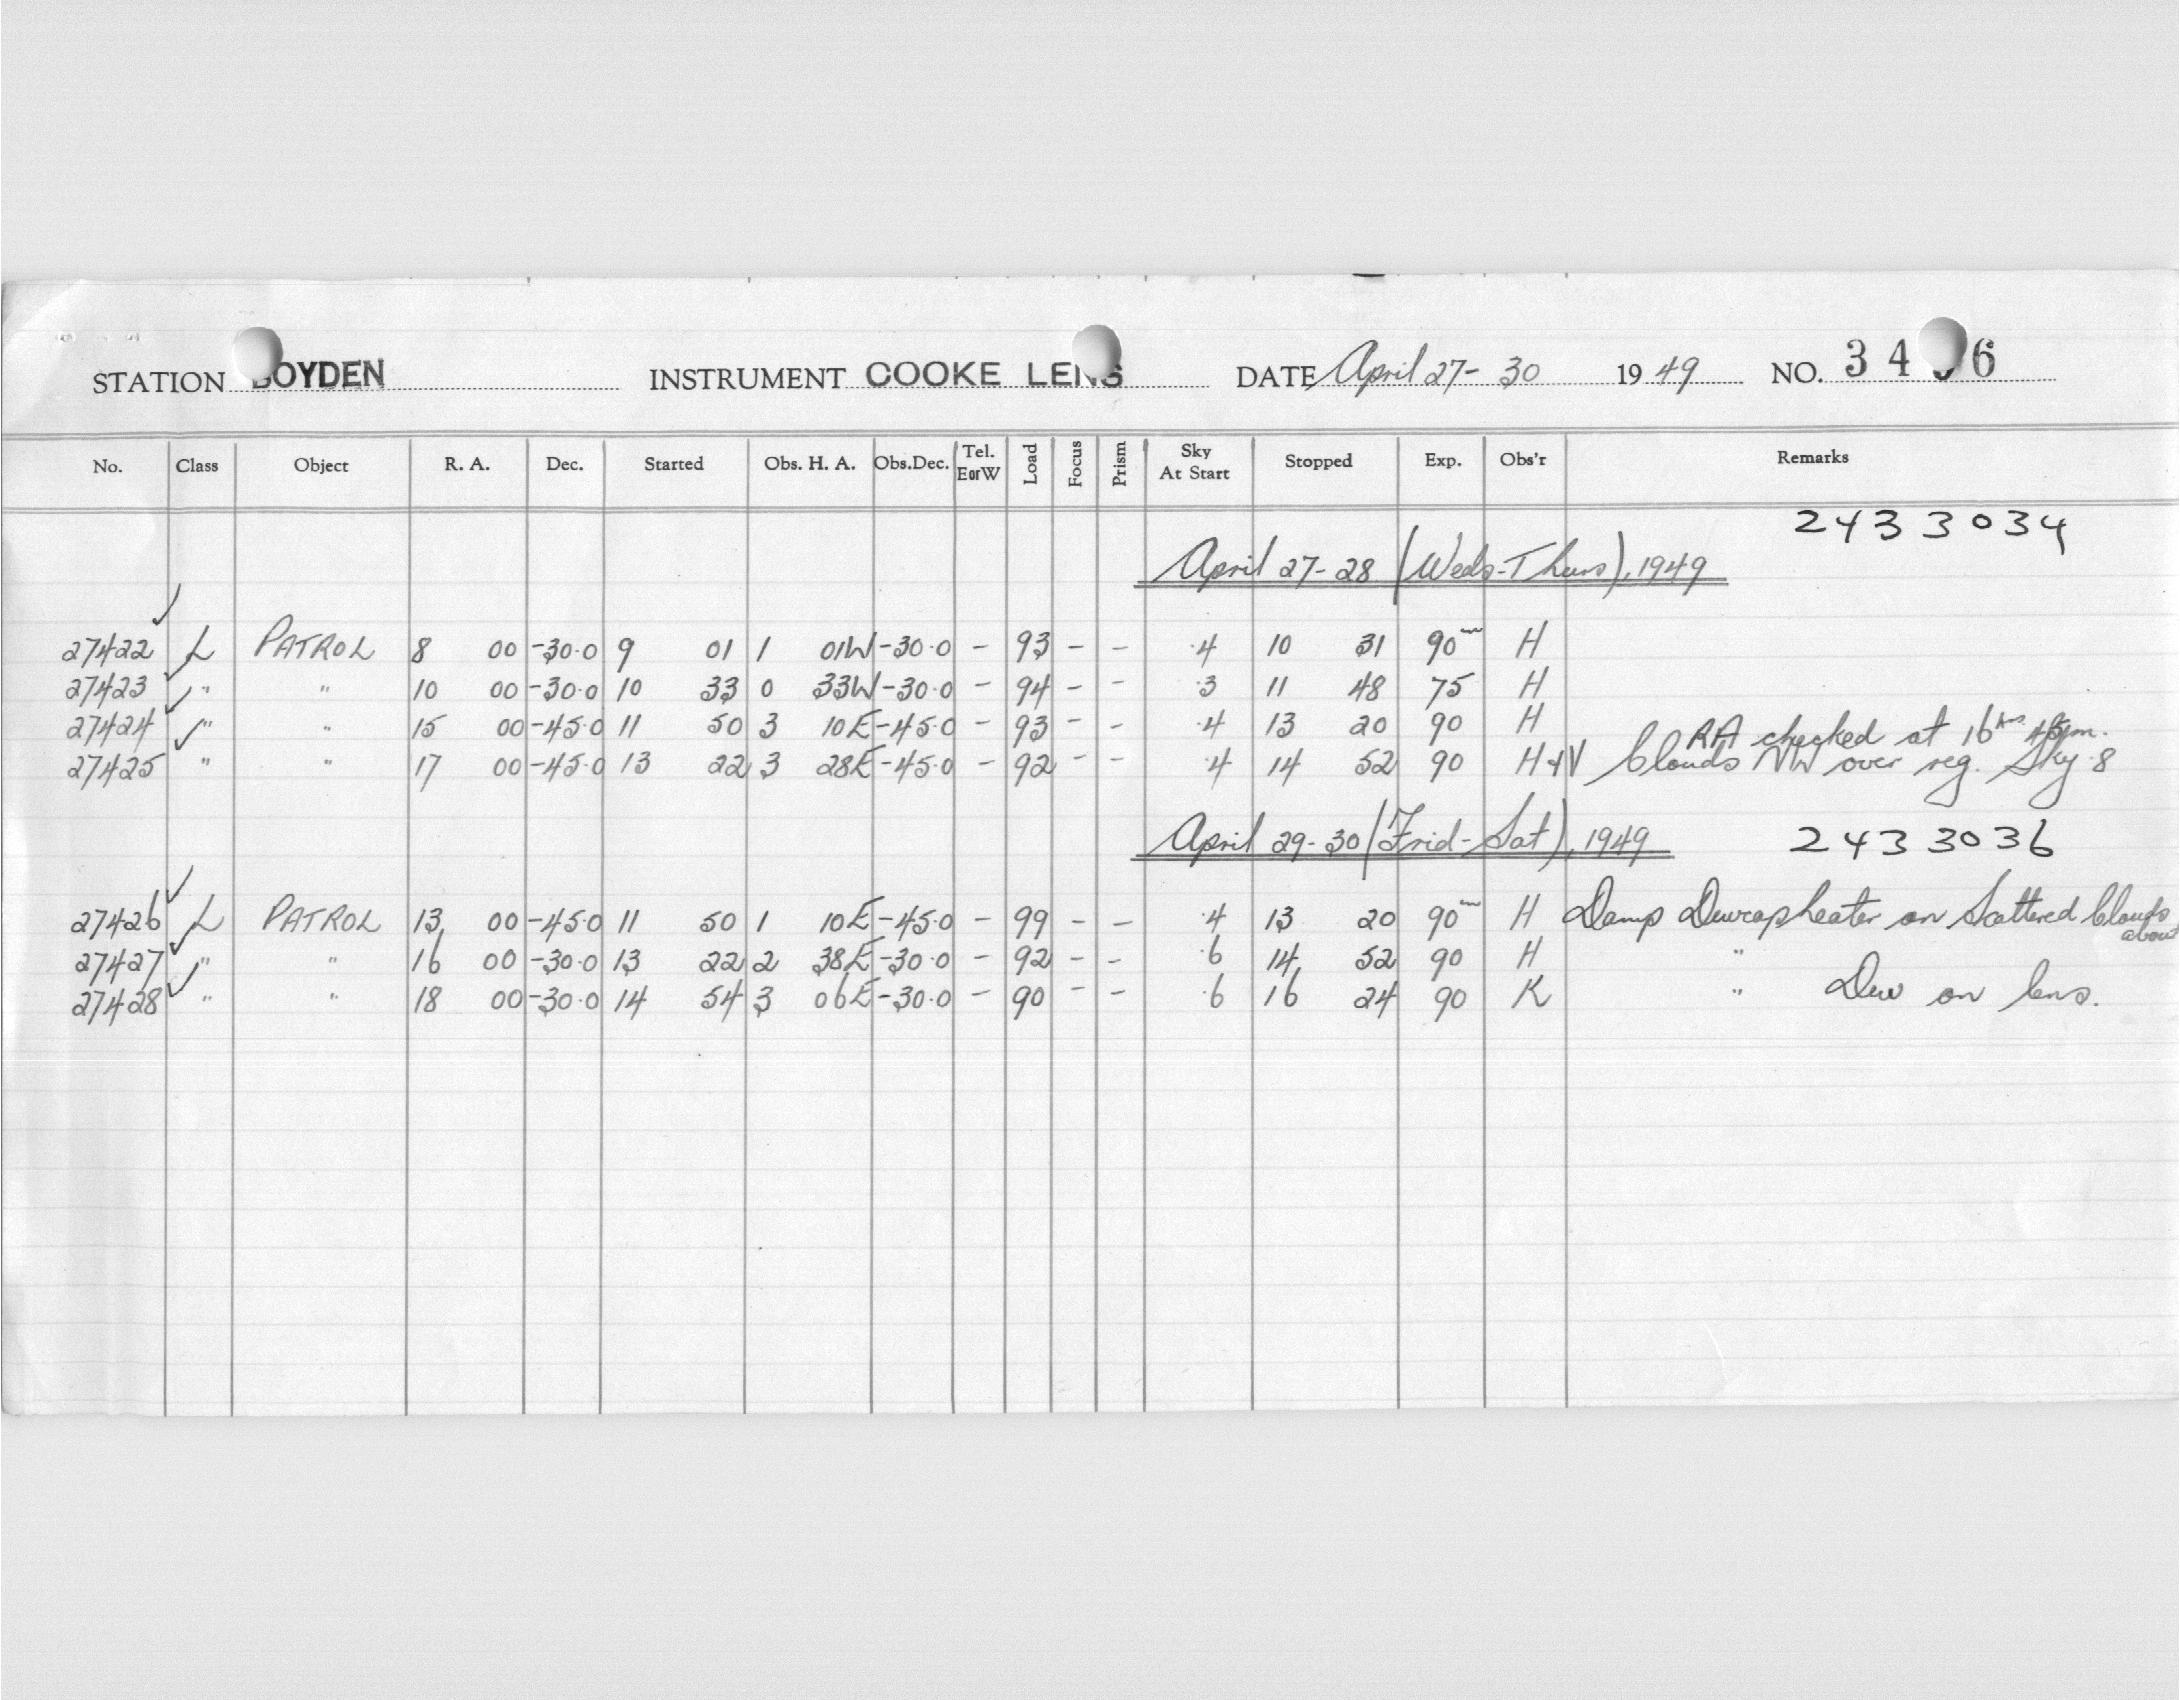 STATION BOYDEN INSTRUMENT COOKE LENS DATE April 27- 30 1949 NO. 34 6
No. Class Object R. A. Dec. Started Obs. H. A. Obs.Dec. Tel. EorW Load Focus Prism Sky At Start Stopped Exp. Obs'r Remarks
2433034
April 27-28 (Weds-Thurs), 1949
27422 L PATROL 8 00 -30.0 9 01 1 01W -30.0 - 93 - - .4 10 31 90m H
27423 " " 10 00 -30.0 10 33 0 33W -30.0 - 94 - - .3 11 48 75 H
27424 " " 15 00 -45.0 11 50 3 10E -45.0 - 93 - - .4 13 20 90 H
RA checked at 16hrs 45m.
27425 " " 17 00 -45.0 13 22 3 28E -45.0 - 92 - - .4 14 52 90 H+V Clouds NW over reg. Sky .8
April 29-30 (Frid-Sat), 1949 2433036
27426 L PATROL 13 00 -45.0 11 50 1 10E -45.0 - 99 - - .4 13 20 90m H Damp Dewcap heater on Scattered Clouds about
27427 " " 16 00 -30.0 13 22 2 38E -30.0 - 92 - - .6 14 52 90 H "
27428 " " 18 00 -30.0 14 54 3 06E -30.0 - 90 - - .6 16 24 90 K " Dew on lens.